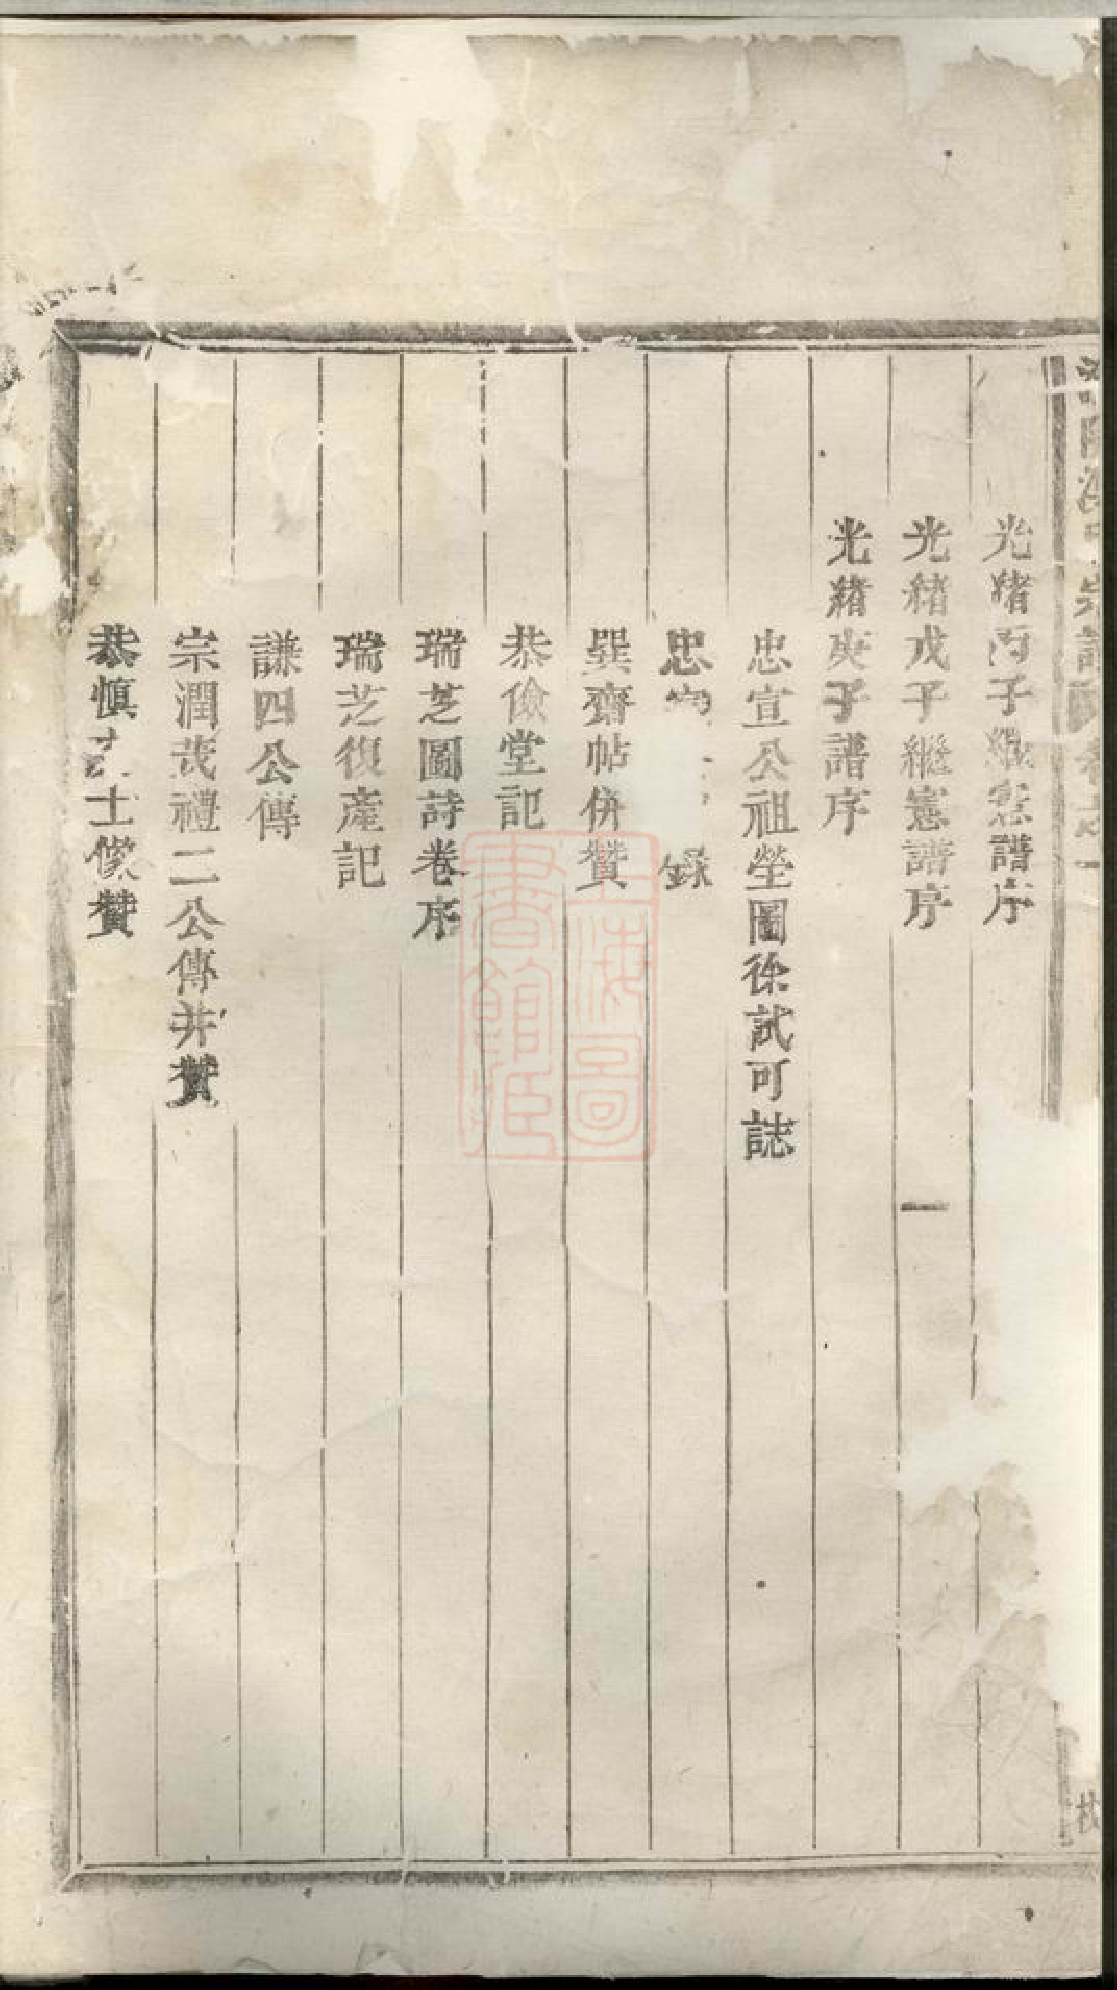 光緒丙子繼憲譜序
光緒戊子繼憲譜序 一
光緒庚子譜序
忠宣公祖塋圖徐試可誌
忠 錄
巽齋帖併贊
恭儉堂記
瑞芝圖詩卷序
瑞芝復產記
謙四公傳
宗潤茂禮二公傳并贊
恭慎 士像贊
上海圖書館藏